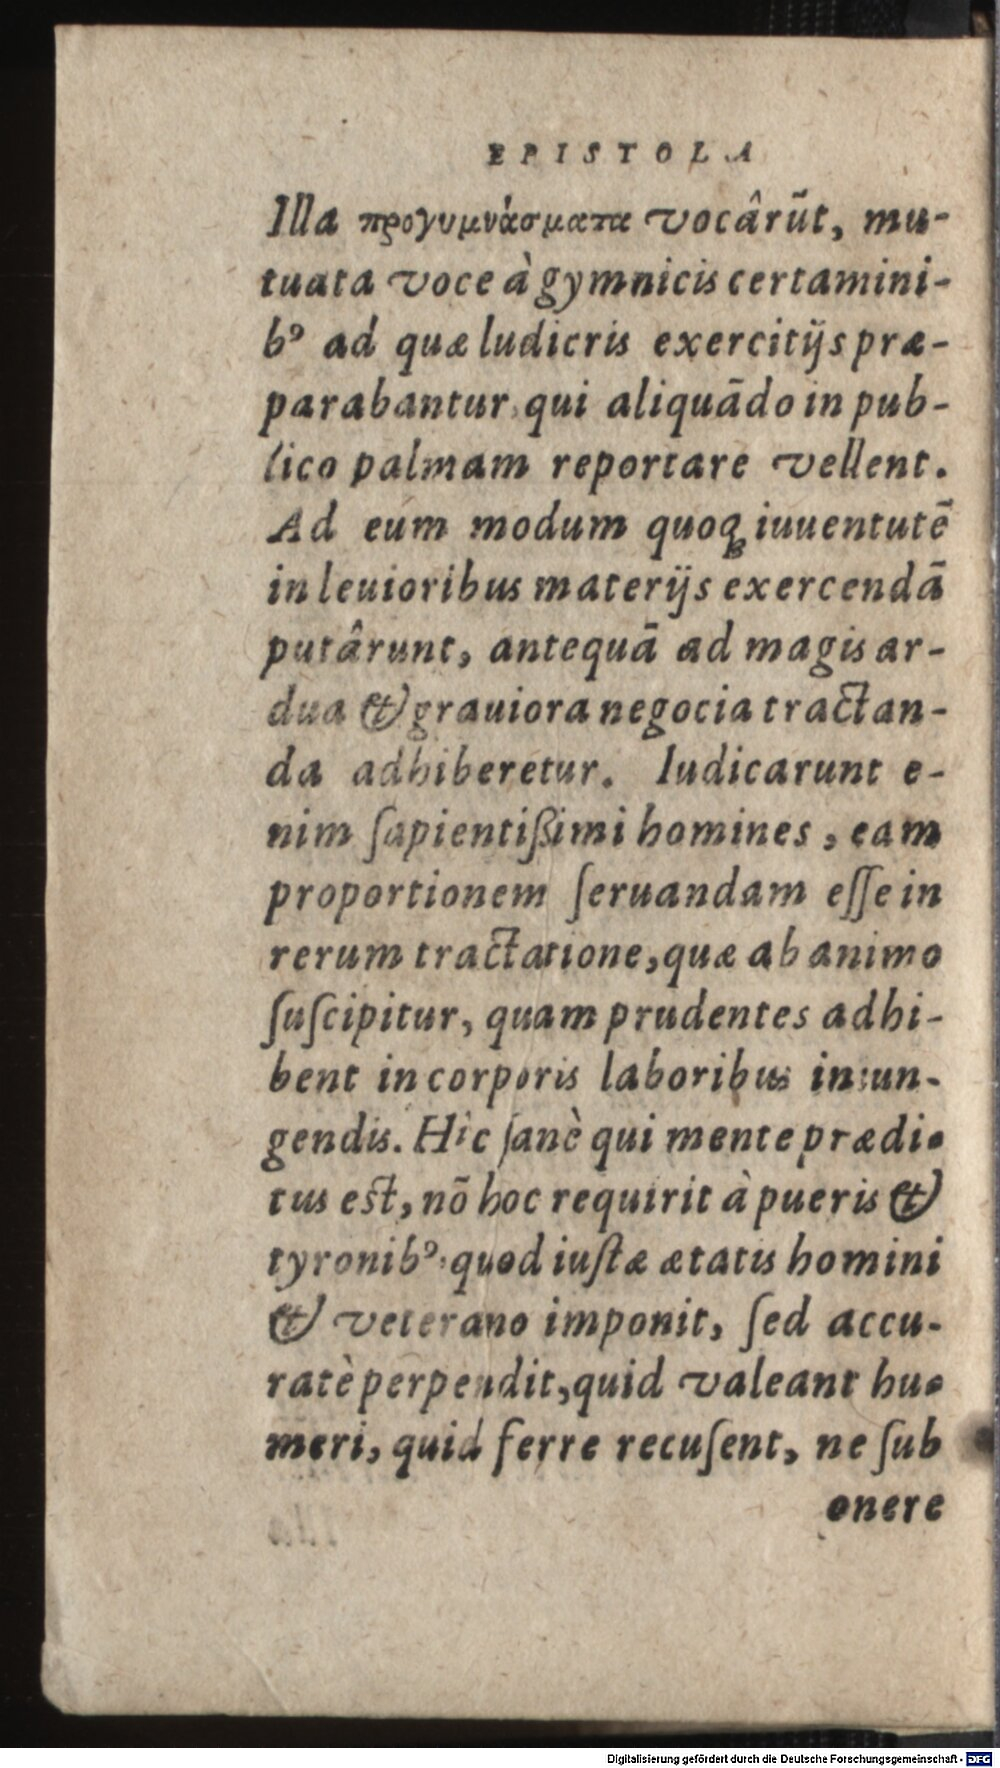 EPISTOLA
Illa προγυμνάσματα vocârũt, mu-
tuata voce à gymnicis certamini-
bꝰ ad quæ ludicris exercitijs præ-
parabantur, qui aliquãdo in pub-
lico palmam reportare vellent.
Ad eum modum quoqꝫ iuuentutẽ
in leuioribus materijs exercendã
putârunt, antequã ad magis ar-
dua & grauiora negocia tractan-
da adhiberetur. Iudicarunt e-
nim ſapientißimi homines, eam
proportionem ſeruandam eſſe in
rerum tractatione, quæ ab animo
ſuſcipitur, quam prudentes adhi-
bent in corporis laboribus iniun-
gendis. Hìc ſanè qui mente prædi-
tus est, nõ hoc requirit à pueris &
tyronibꝰ: quod iuſtæ ætatis homini
& veterano imponit, ſed accu-
ratè perpendit, quid valeant hu-
meri, quid ferre recuſent, ne ſub
onere
Digitalisierung gefördert durch die Deutsche Forschungsgemeinschaft - DFG